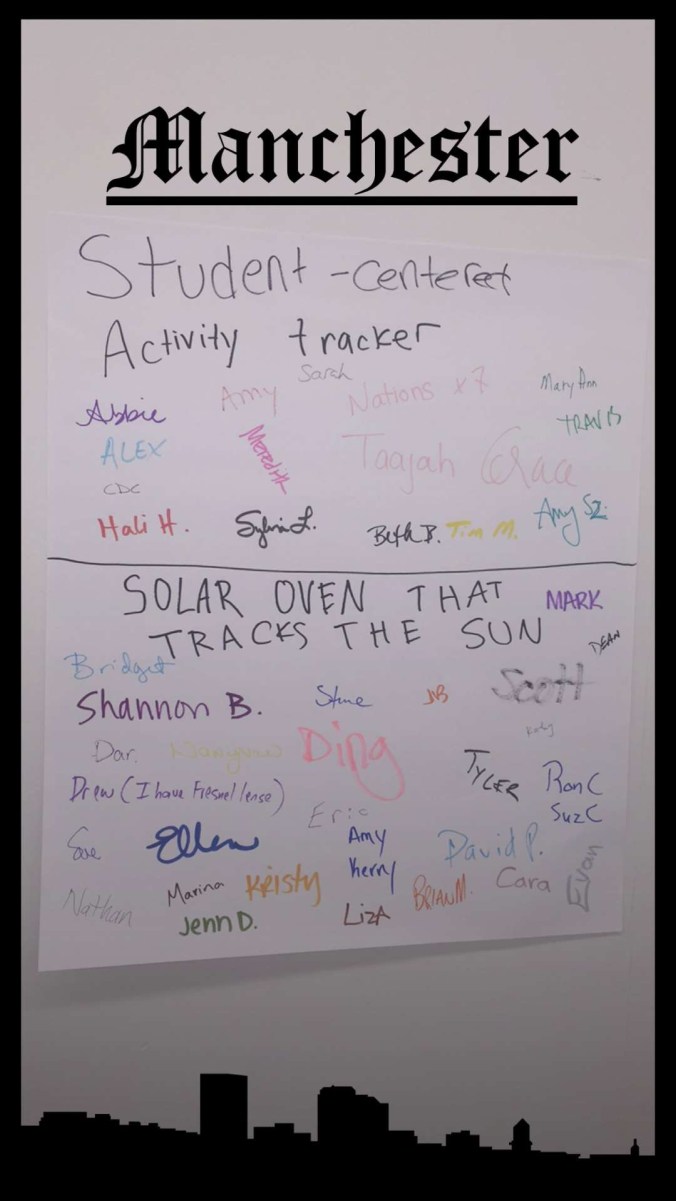 Manchester
Student-centered
Activity tracker
Sarah
Abbie Amy Nations x7 Mary Ann
TRAVIS
ALEX Meredith Taajah Grace
CDC
Hali H. Sylvia L. Beth B. Tim M. Amy Sz.
SOLAR OVEN THAT MARK
TRACKS THE SUN DEAN
Bridget
Shannon B. Steve JVB Scott
Dar. Ding
Drew (I have Fresnel lense) TYLER Ron C
Suz C
Eric
Sue Ellen Amy David P.
Kerry
Nathan Marina Kristy BRIAN M. Cara Evan
Jenn D. LizA